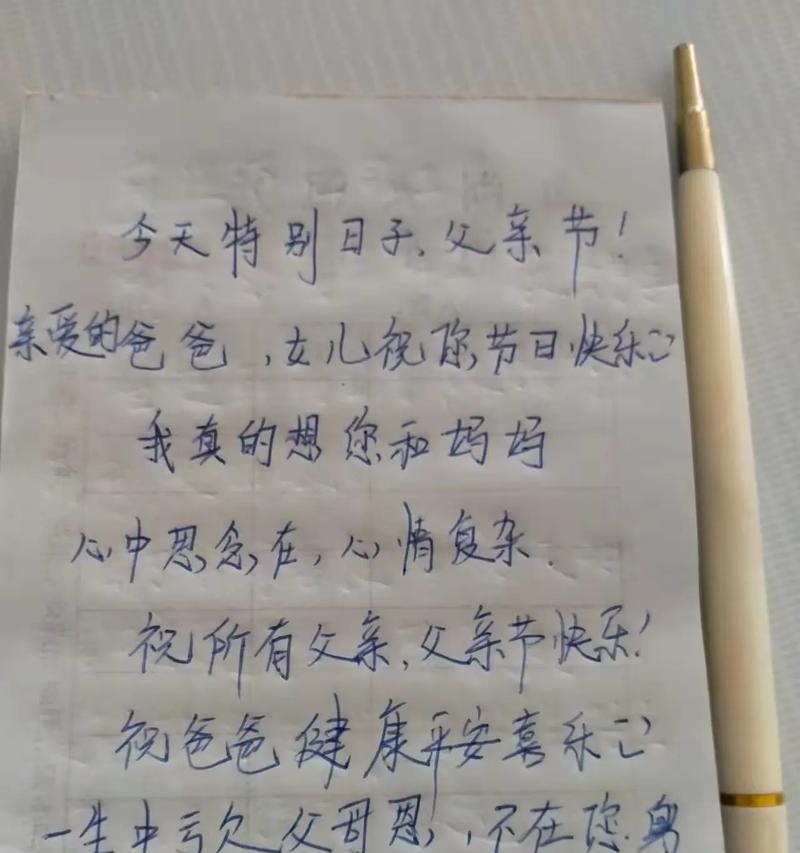 今天特别日子,父亲节!
亲爱的爸爸,女儿祝你节日快乐
我真的想您和妈妈
心中思念在,心情复杂.
祝所有父亲,父亲节快乐!
祝爸爸健康平安喜乐
一生中亏欠父母恩,不在您身